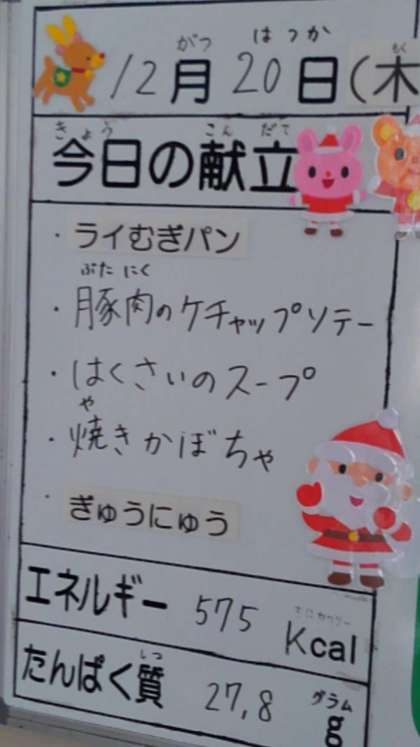 がつ はつか もく
12月20日(木
きょう こん だて
今日の献立
・ライむぎパン
ぶたにく
・豚肉のケチャップソテー
・はくさいのスープ
や
・焼きかぼちゃ
・ぎゅうにゅう
エネルギー 575 Kcal
しつ グラム
たんぱく質 27,8 g